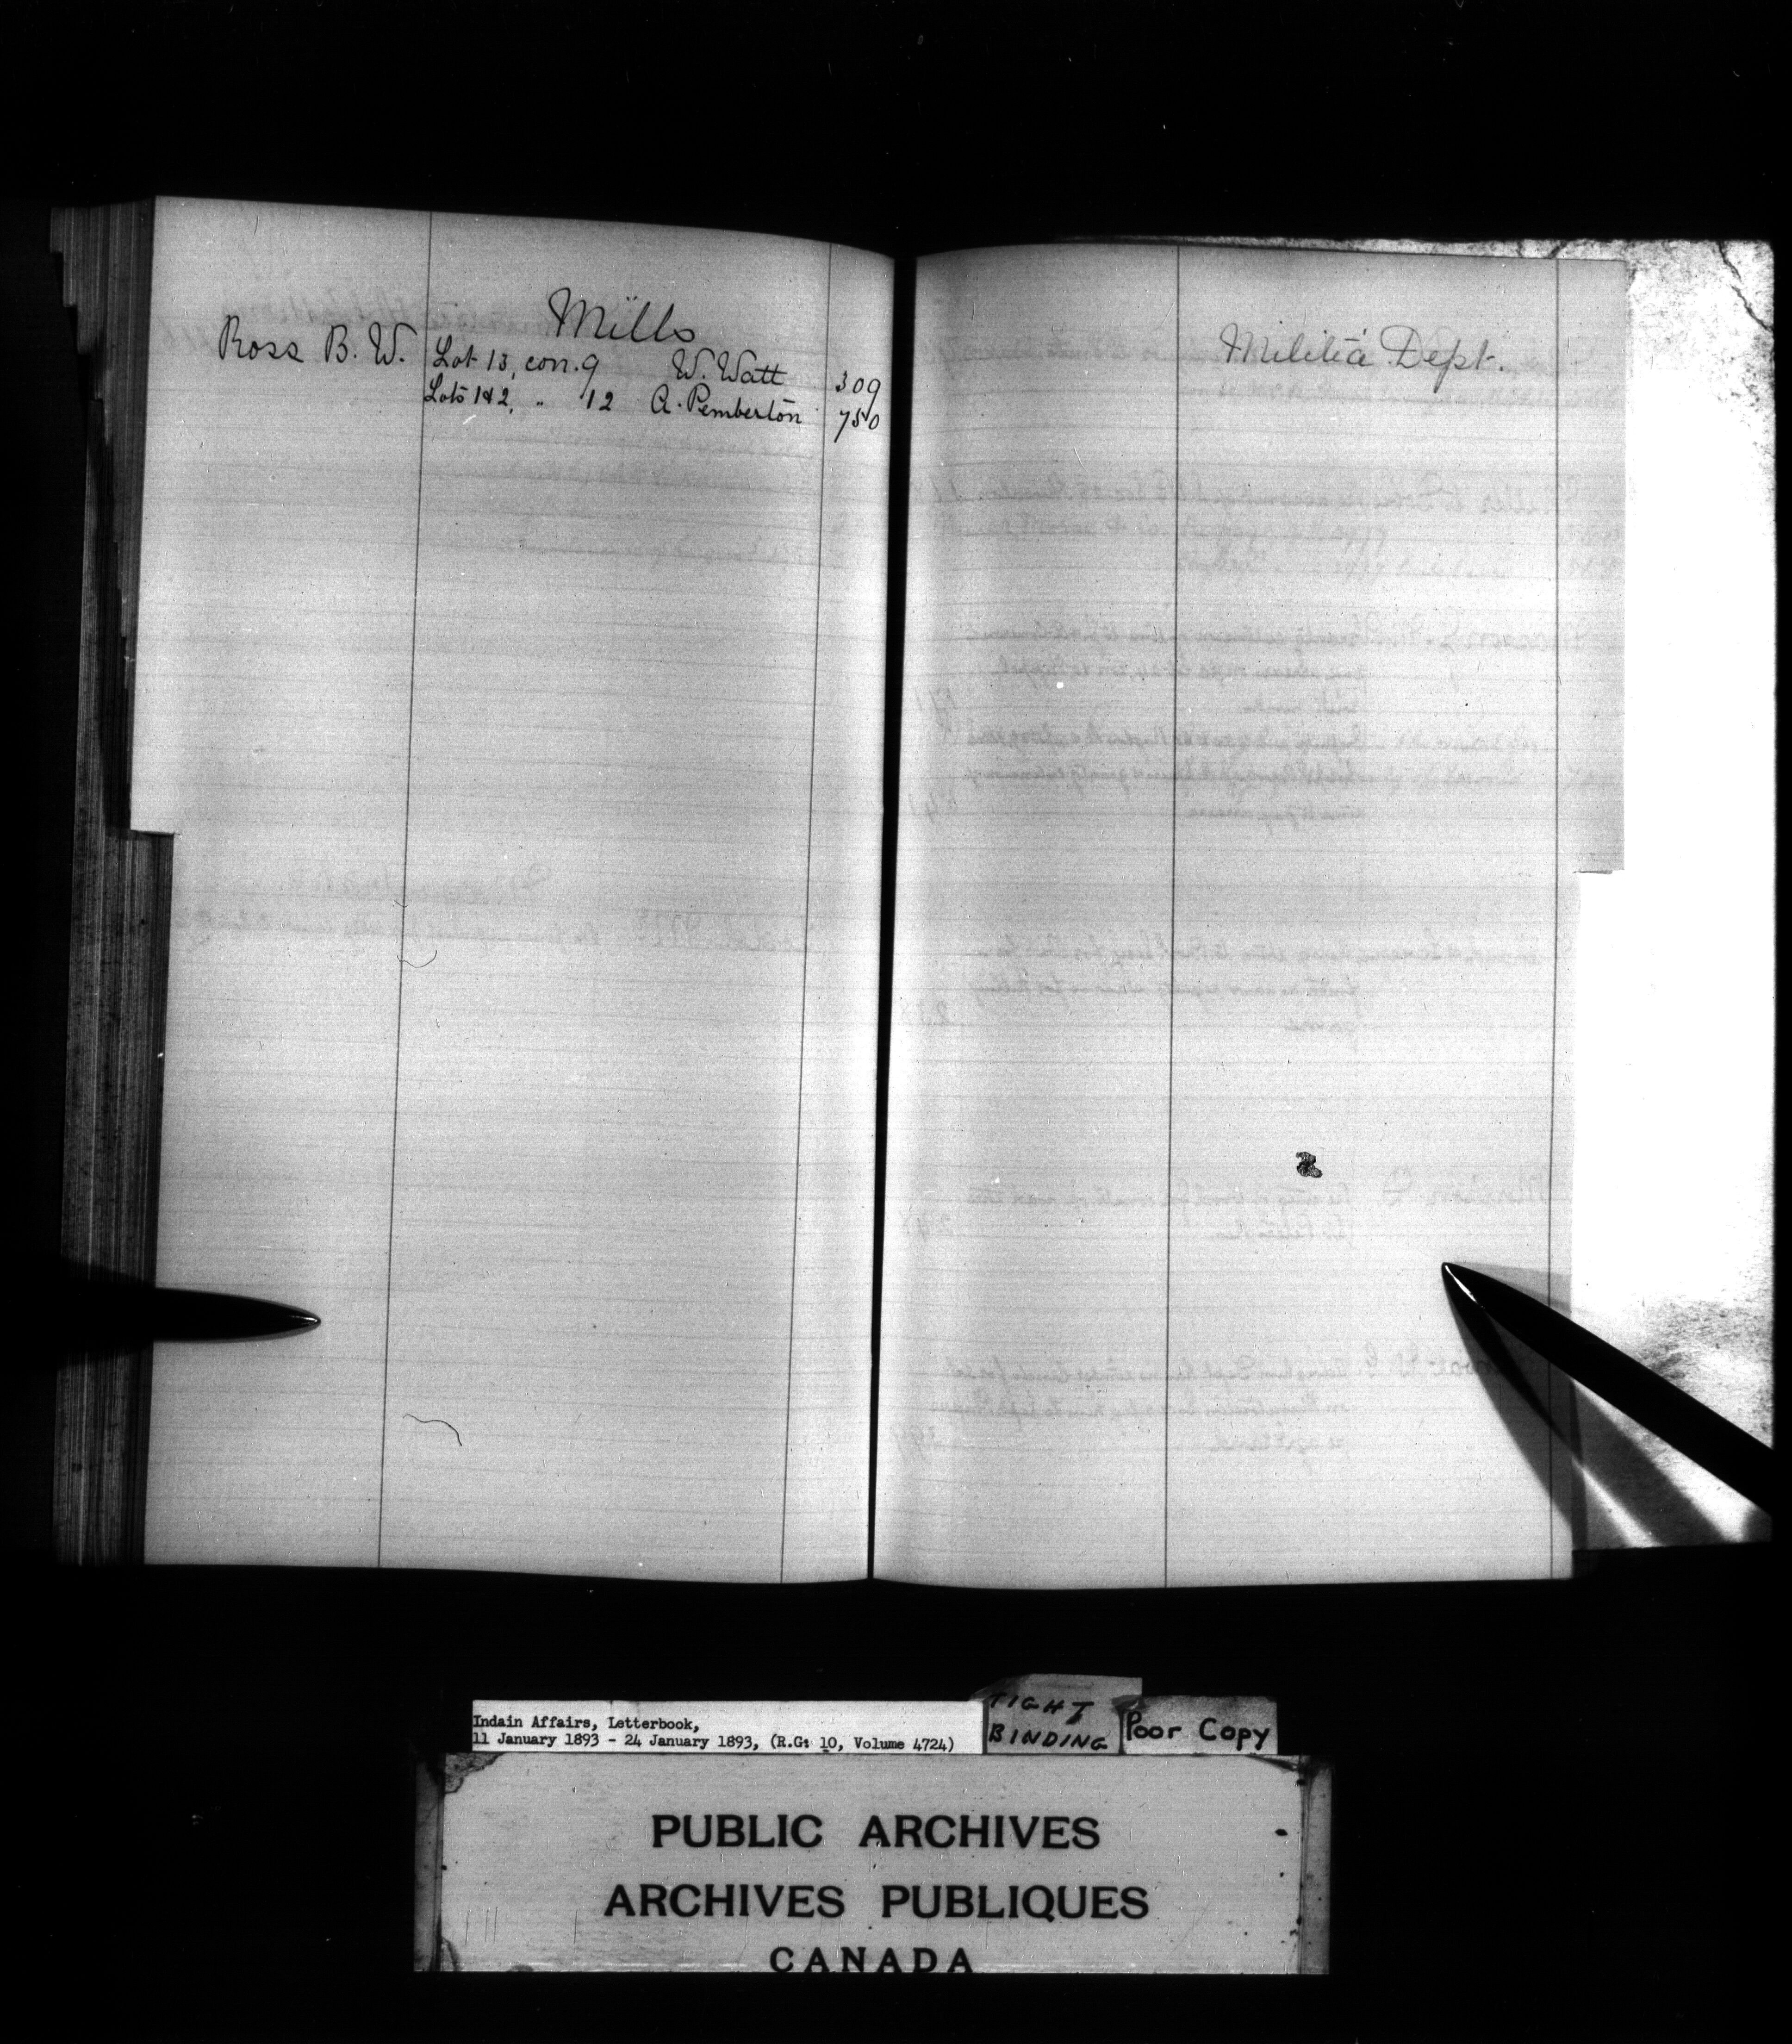 Mills
Ross B. W. Lot 13, con. 9 W. Watt 309
Lots 1 & 2, " 12 A. Pemberton 750
Militia Dept.
Indain Affairs, Letterbook,
11 January 1893 - 24 January 1893, (R.G: 10, Volume 4724)
TIGHT
BINDING
Poor Copy
PUBLIC ARCHIVES
ARCHIVES PUBLIQUES
CANADA